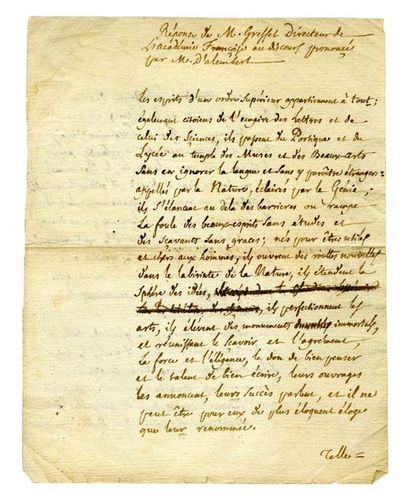 Réponse de M. Gresset Directeur de
L'académie Françoise au discours prononcé
par M. D'alembert
Les esprits d'un ordre Supérieur appartiennent à tout;
également citoiens de l'empire des Lettres et de
celui des Sciences, ils passent du Portique et du
Lycée au temple des Muses et des Beaux-arts
Sans en ignorer la langue et Sans y paroître étrangers:
appellés par la Nature, éclairés par le Génie,
ils S'élancent au delà des barrières ou rampe
La foule des beaux-esprits Sans études et
des Sçavants Sans graces; nés pour être utiles
et chers aux hommes, ils ouvrent des routes nouvelles
dans le labirinte de la Nature, ils étendent la
Sphère des idées,
ils perfectionnent les
arts, ils élèvent des monuments immortels,
et réunissant le Scavoir et l'agrément,
la force et l'élégance, le don de bien penser
et le talent de bien écrire, leurs ouvrages
les annoncent, leurs Succès parlent, et il ne
peut être pour eux de plus éloquent éloge
que leur renommée.
Telle =